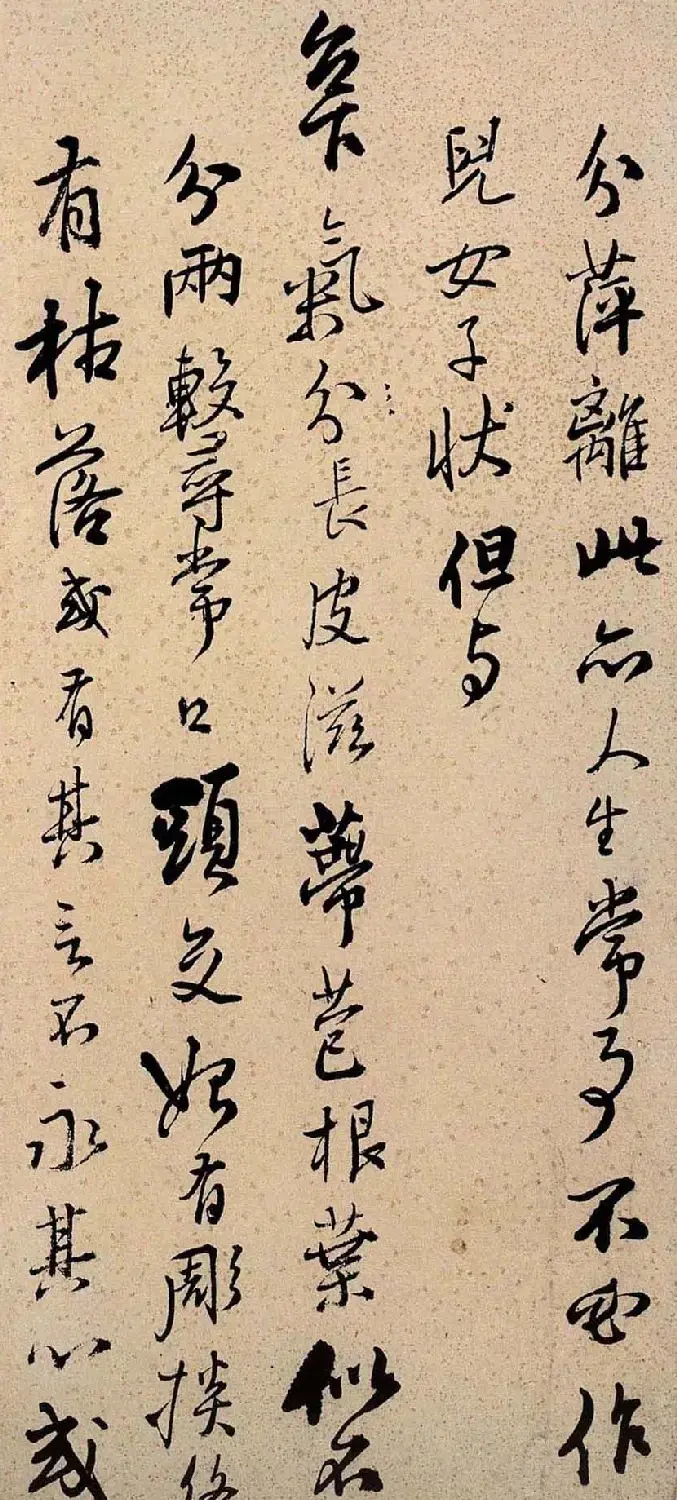 分萍離此亦人生常事不必作
兒女子狀但与
台下氣分長皮滋蔕苞根葉似不
分兩較尋常口頭交始有彫掞
有枯落或有其言不永其心或